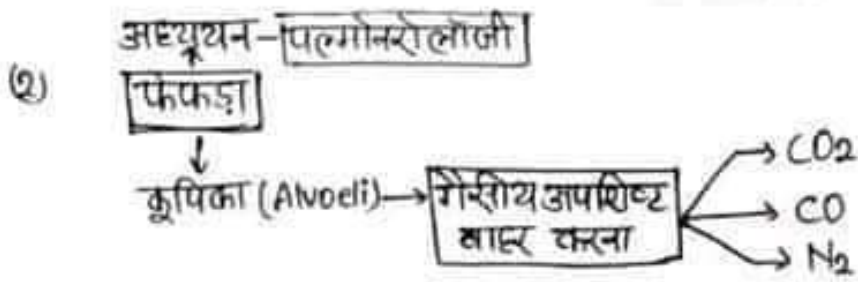 अध्ययन - पल्मोनरोलॉजी
(2) फेफड़ा
कूपिका (Alvoeli) → गैसीय अपशिष्ट बाहर करना
CO2
CO
N2